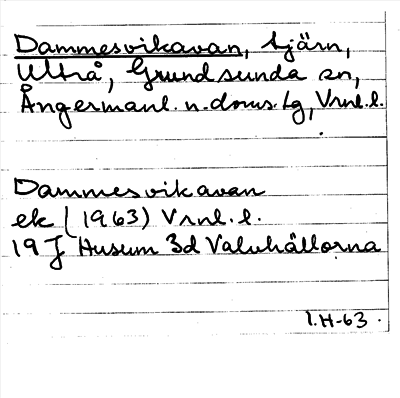 Dammesvikavan, tjärn,
Ultrå, Grundsunda sn,
Ångermanl. n. doms. tg, Vrnl. l.
Dammesvikavan
ek (1963) Vrnl. l.
19 J Husum 3d Valvhällorna
I.H-63.